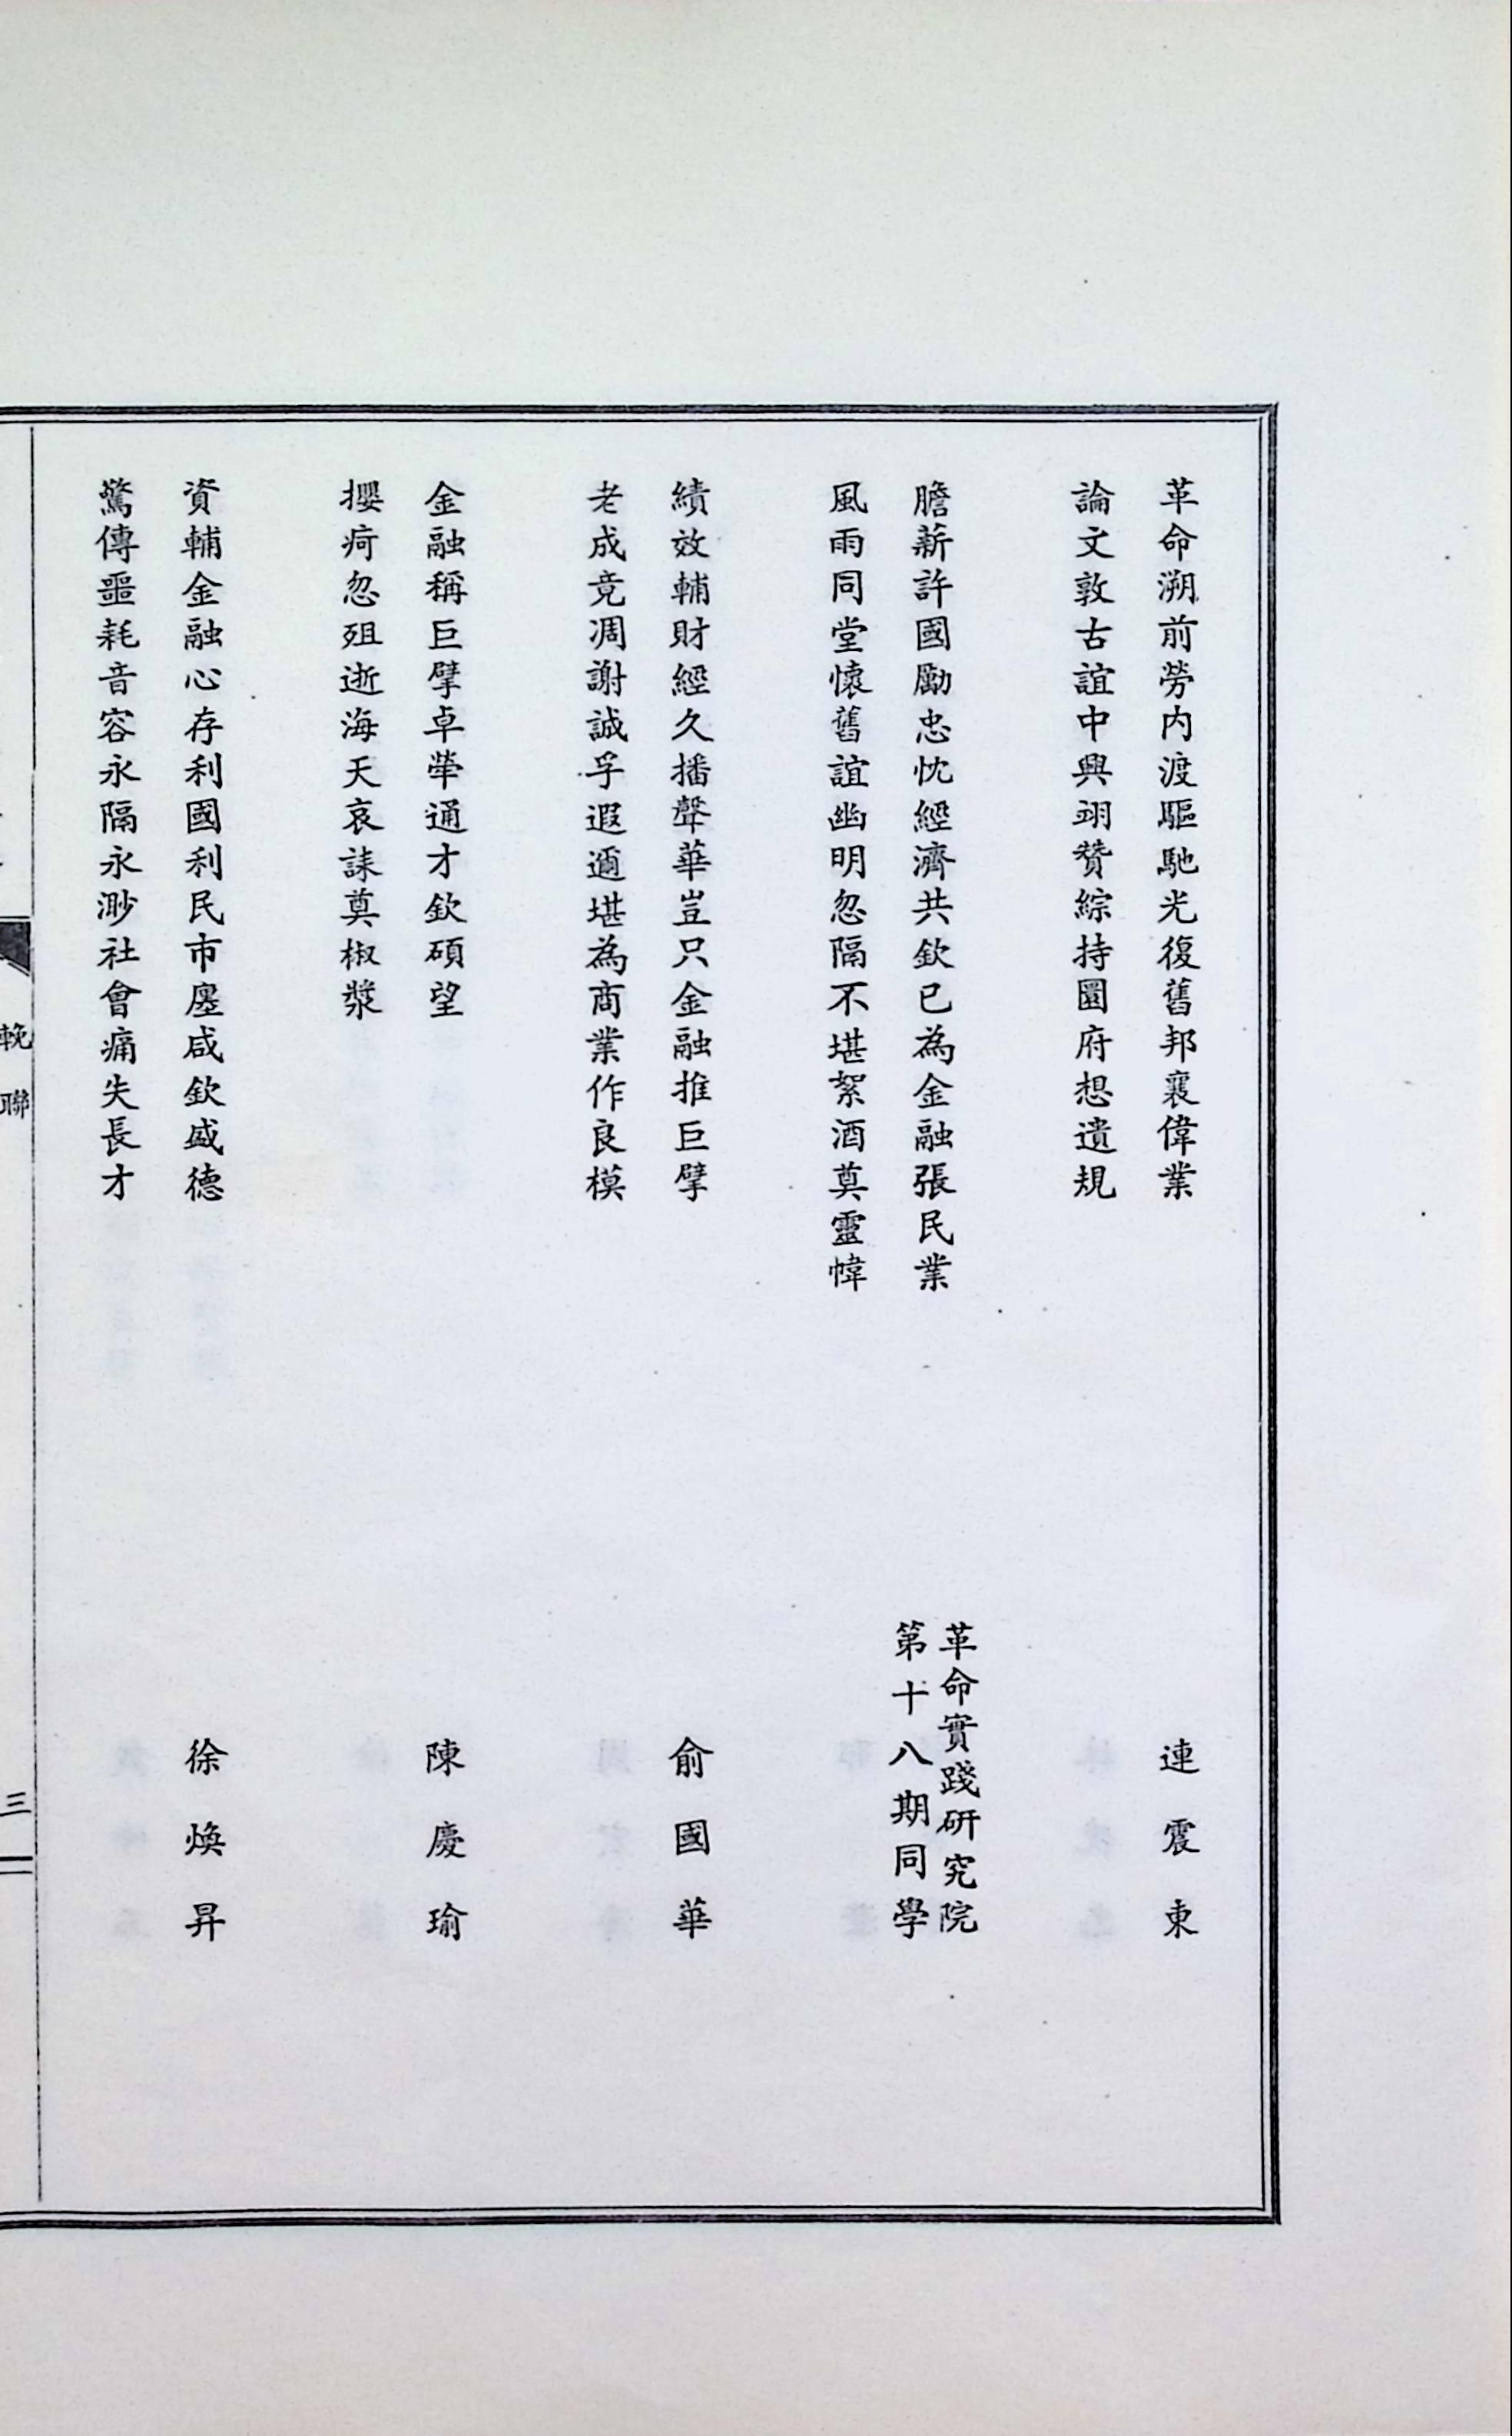 革命溯前勞内渡驅馳光復舊邦襄偉業
連震東
論文敦古誼中興翊贊綜持圜府想遺規
膽薪許國勵忠忱經濟共欽已為金融張民業
革命實踐研究院
第十八期同學
風雨同堂懷舊誼幽明忽隔不堪絮酒奠靈幃
績效輔財經久播聲華豈只金融推巨擘
俞國華
老成竟凋謝誠孚遐邇堪為商業作良模
金融稱巨擘卓犖通才欽碩望
陳慶瑜
攖疴忽殂逝海天哀誄奠椒漿
資輔金融心存利國利民市廛咸欽盛德
徐煥昇
驚傳噩耗音容永隔永渺社會痛失長才
輓聯
三